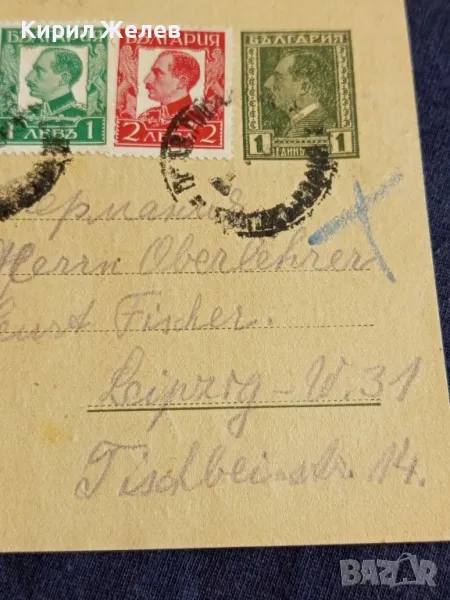 Кирил Желев
БЪЛГАРИЯ
1 ЛЕВЪ 1
БЪЛГАРИЯ
2 ЛЕВА 2
БЪЛГАРИЯ
1 ЕДИНЪ
Германия
Herrn Oberlehrer
Curt Fischer.
Leipzig-W. 31
Tischbeinstr. 14.
BAZAR